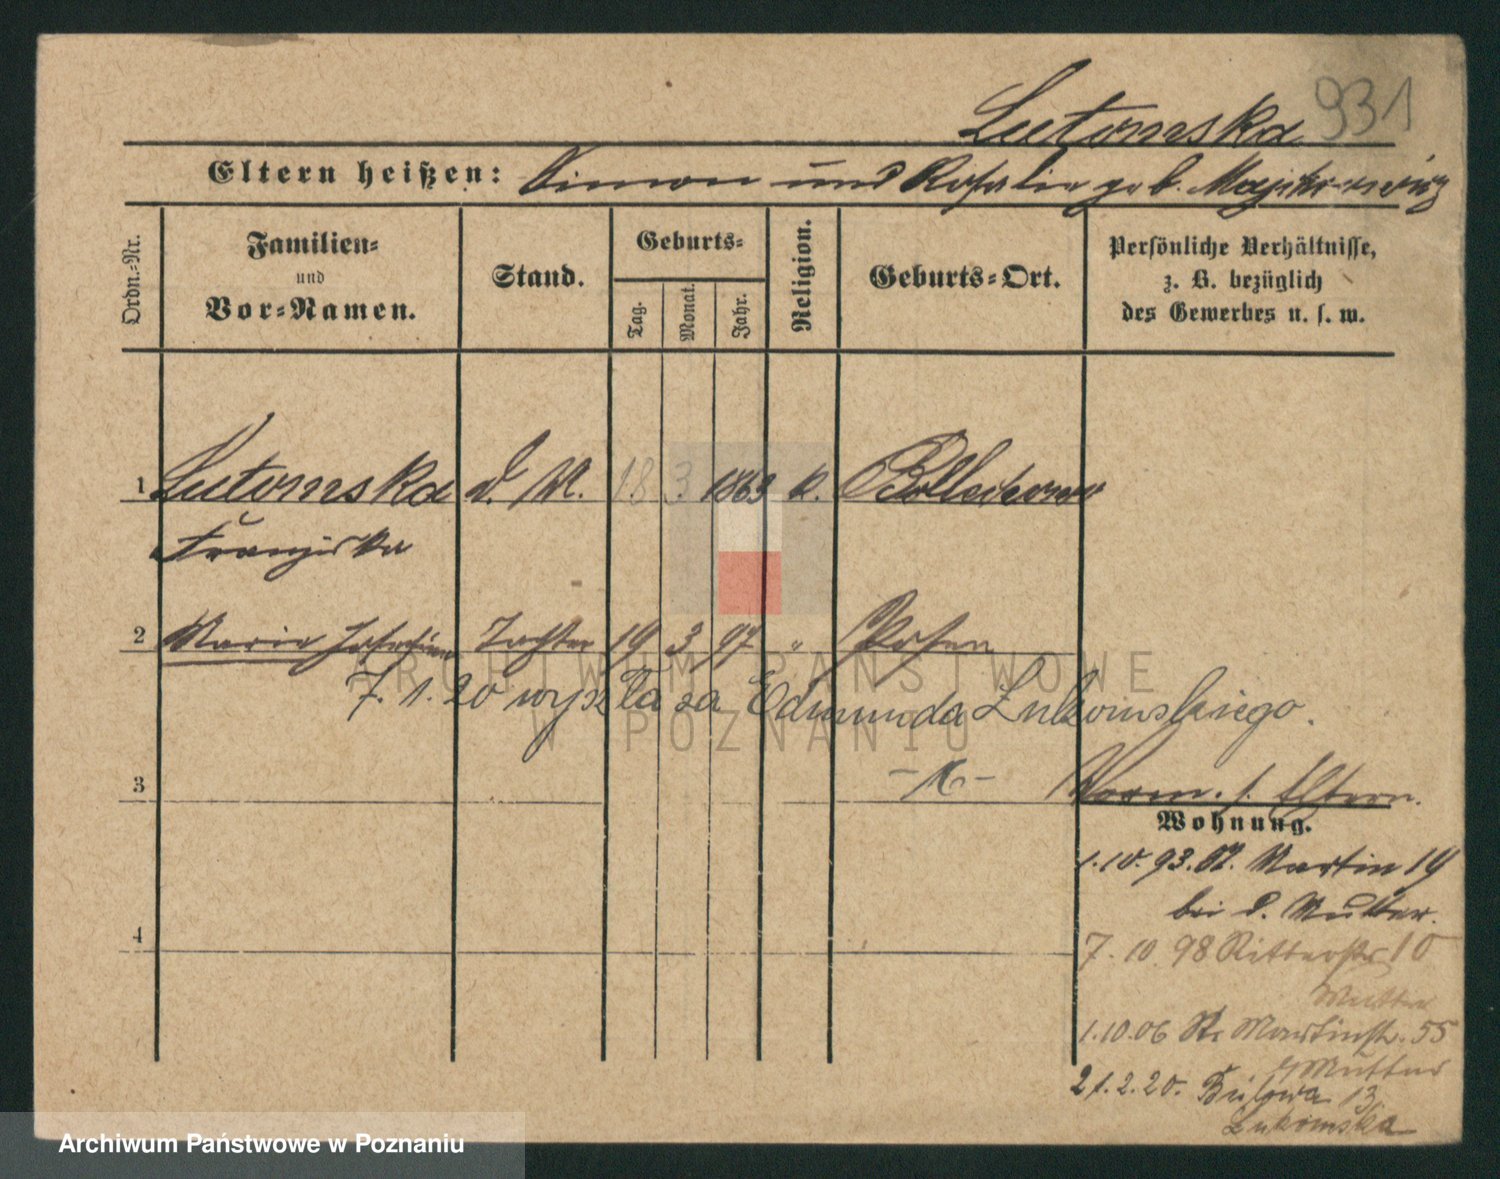 931
Lutomska
Eltern heißen: Simon und Rosalie geb.
Ordn.-Nr.
Familien-
und
Vor-Namen.
Stand.
Geburts-
Tag.
Monat.
Jahr.
Religion.
Geburts-Ort.
Persönliche Verhältnisse,
z. B. bezüglich
des Gewerbes u. s. w.
1 Lutomska d. M. 18 3 1863 k.
Franziska
2 Maria Josefine Tochter 19 3 97 " Posen
ARCHIWUM PAŃSTWOWE
W POZNANIU
7. 1. 20 wyszła za Edmunda Łukomskiego.
3
Vorm. s. Eltern.
Wohnung.
1.10.93. St. Martin 19
bei d. Mutter.
4
7. 10. 98 Ritterstr 10
Mutter
1.10.06 St. Martinstr. 55
Mutter
21.2.20. Bülowa 13,
Łukomska
Archiwum Państwowe w Poznaniu